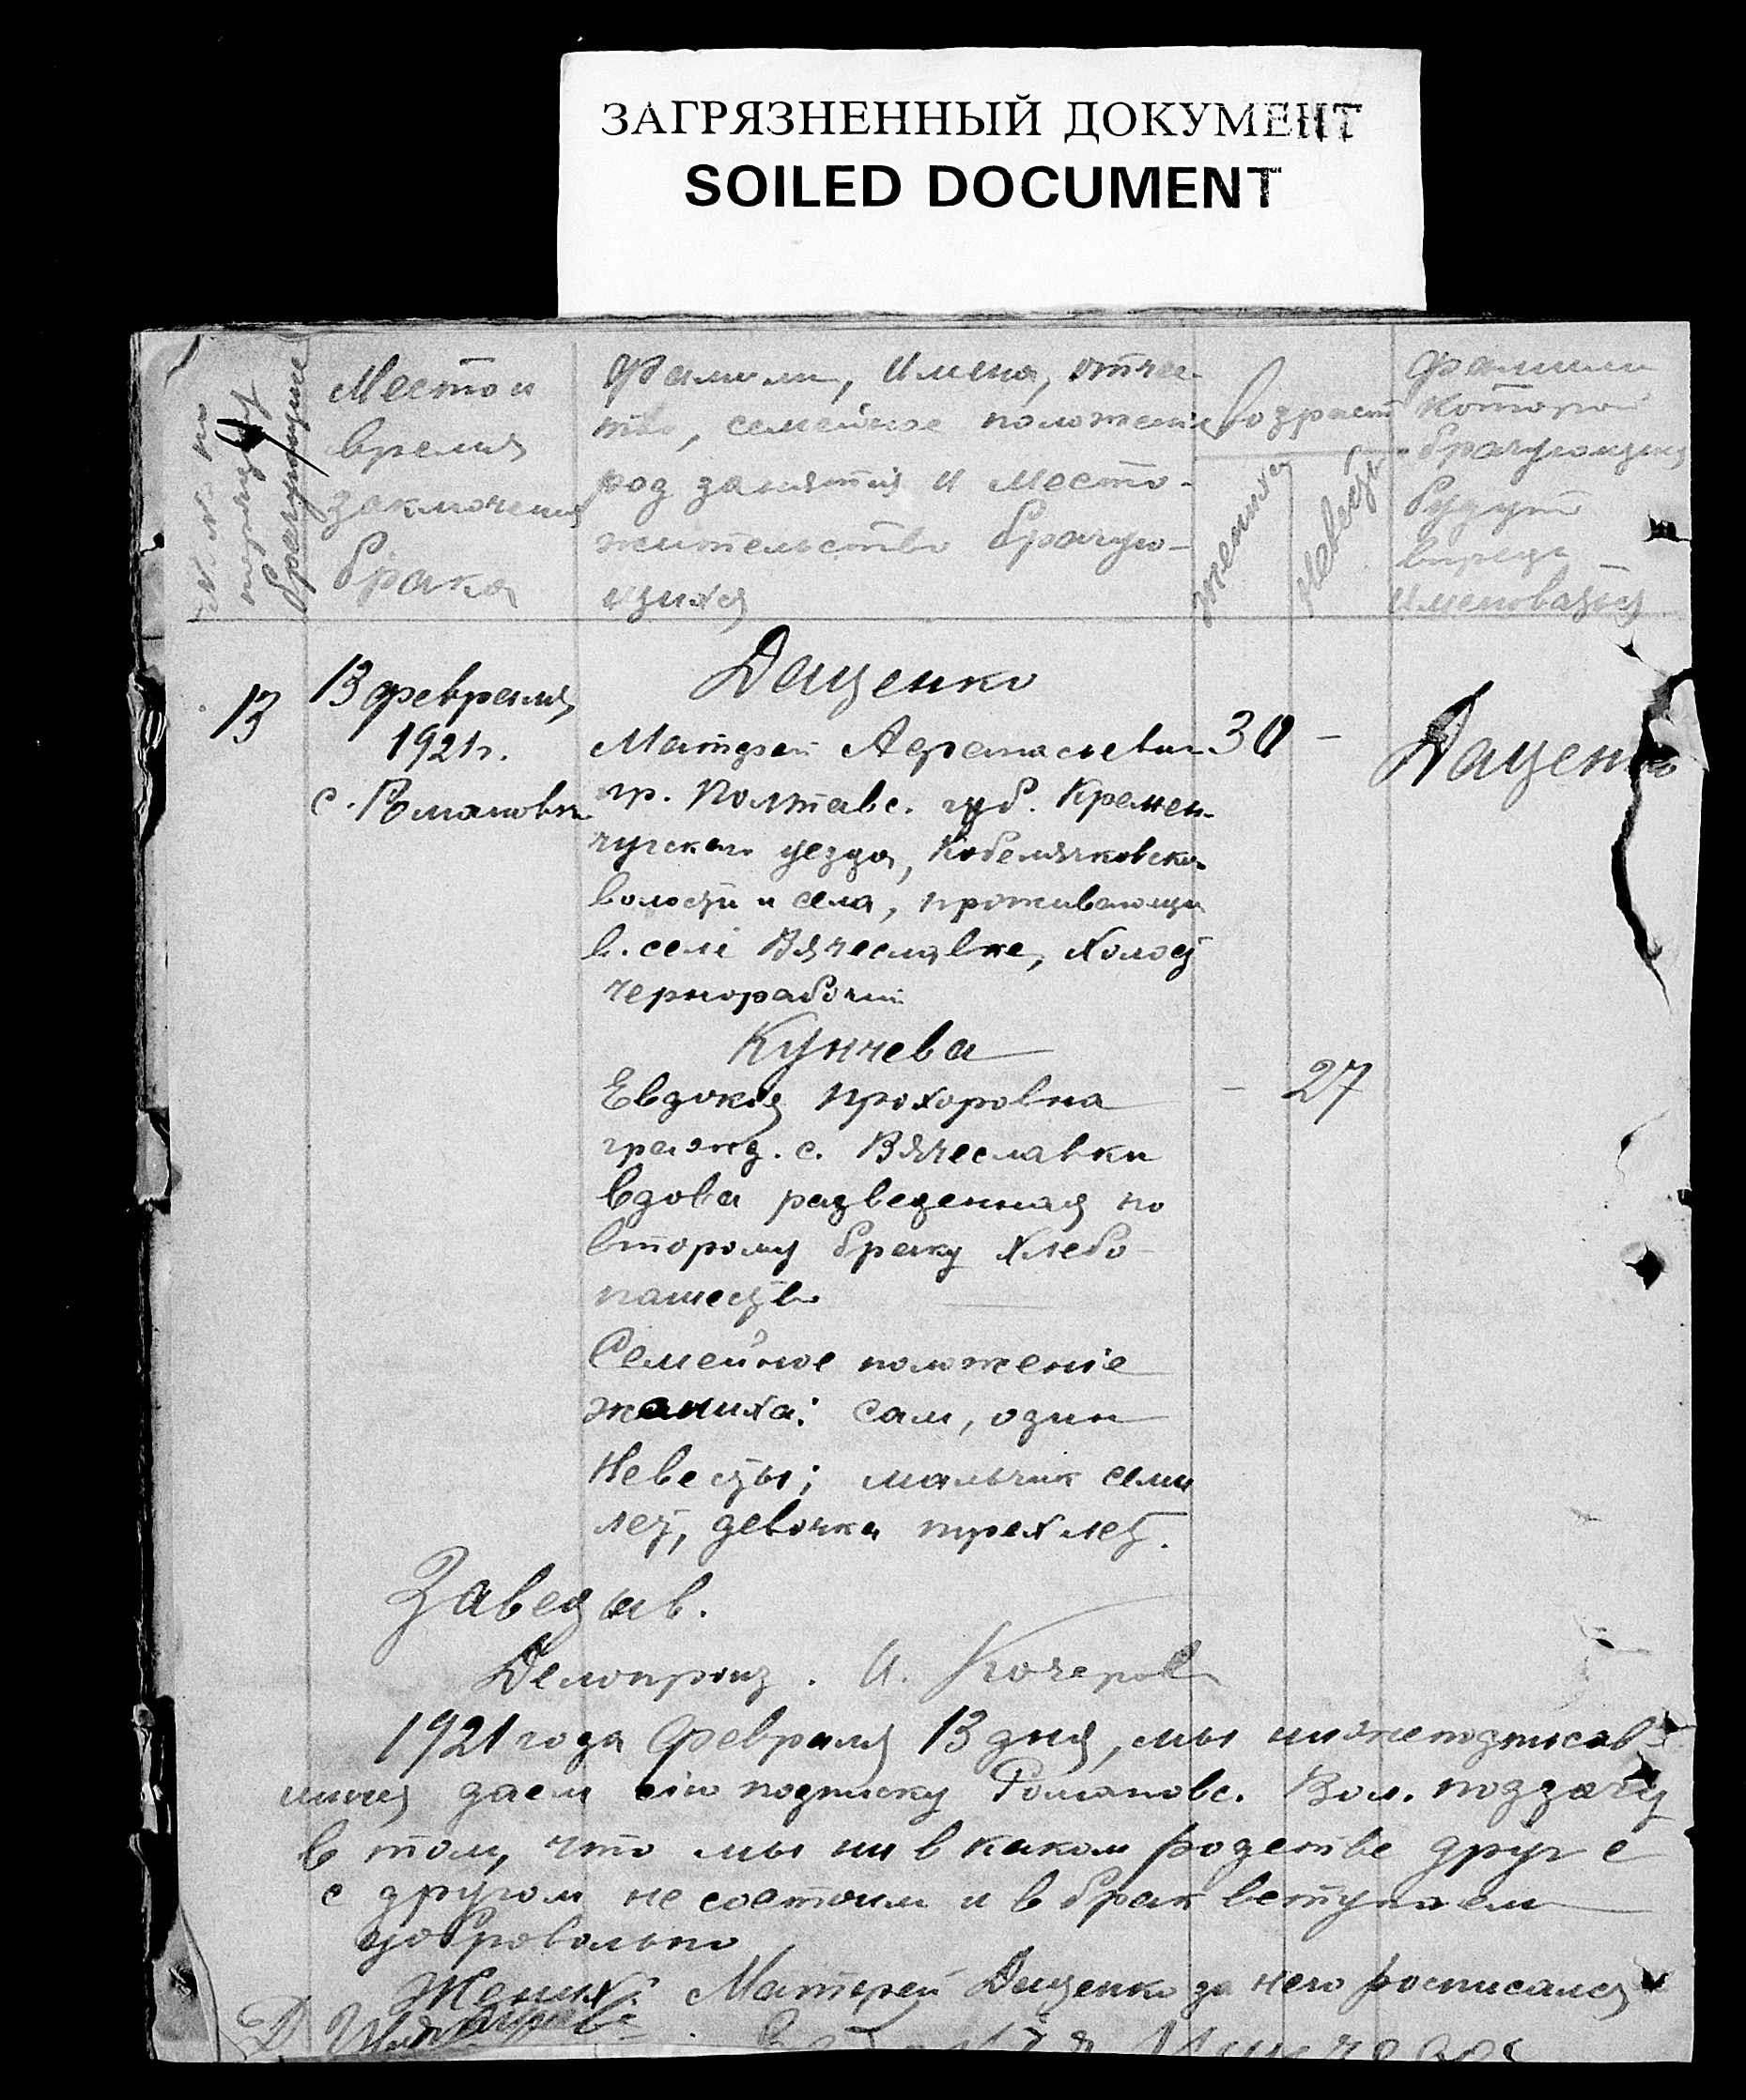 ЗАГРЯЗНЕННЫЙ ДОКУМЕНТ
SOILED DOCUMENT
№ № по
порядку
брачующие
Место и
время
заключения
брака
Фамилии, имена, отчес-
тво, семейное положение
род занятия и место-
жительство брачую-
щихся
Возраст
жениха
невесты
Фамилии
которой
брачующиеся
будут
впредь
именоваться
13
13 февраля
1921 г.
с. Романовка
Дащенко
Матфей Афанасьевич
гр. Полтавс. губ. Кремен-
чугскаго уезда, Кобелячковской
волости и села, проживающий
в. селе Вячеславке, холост
чернорабочий
30 -
Дащенко
Кунчева
Евдокия Прохоровна
гражд. с. Вячеславки
вдова разведенная по
второму браку хлебо-
пашество
- 27
Семейное положеніе
жениха: сам, один
Невесты; мальчик семи
лет, девочка трех лет.
Заведыв.
Делопроиз. И. Кочеров
1921 года февраля 13 дня, мы нижеподписав-
шиеся даем сию подписку Романовс. Вол. подзагсу
в том, что мы ни в каком родстве друг с
с другом не состоим и в брак вступаем
добровольно
Жених: Матфей Дащенко за него росписался